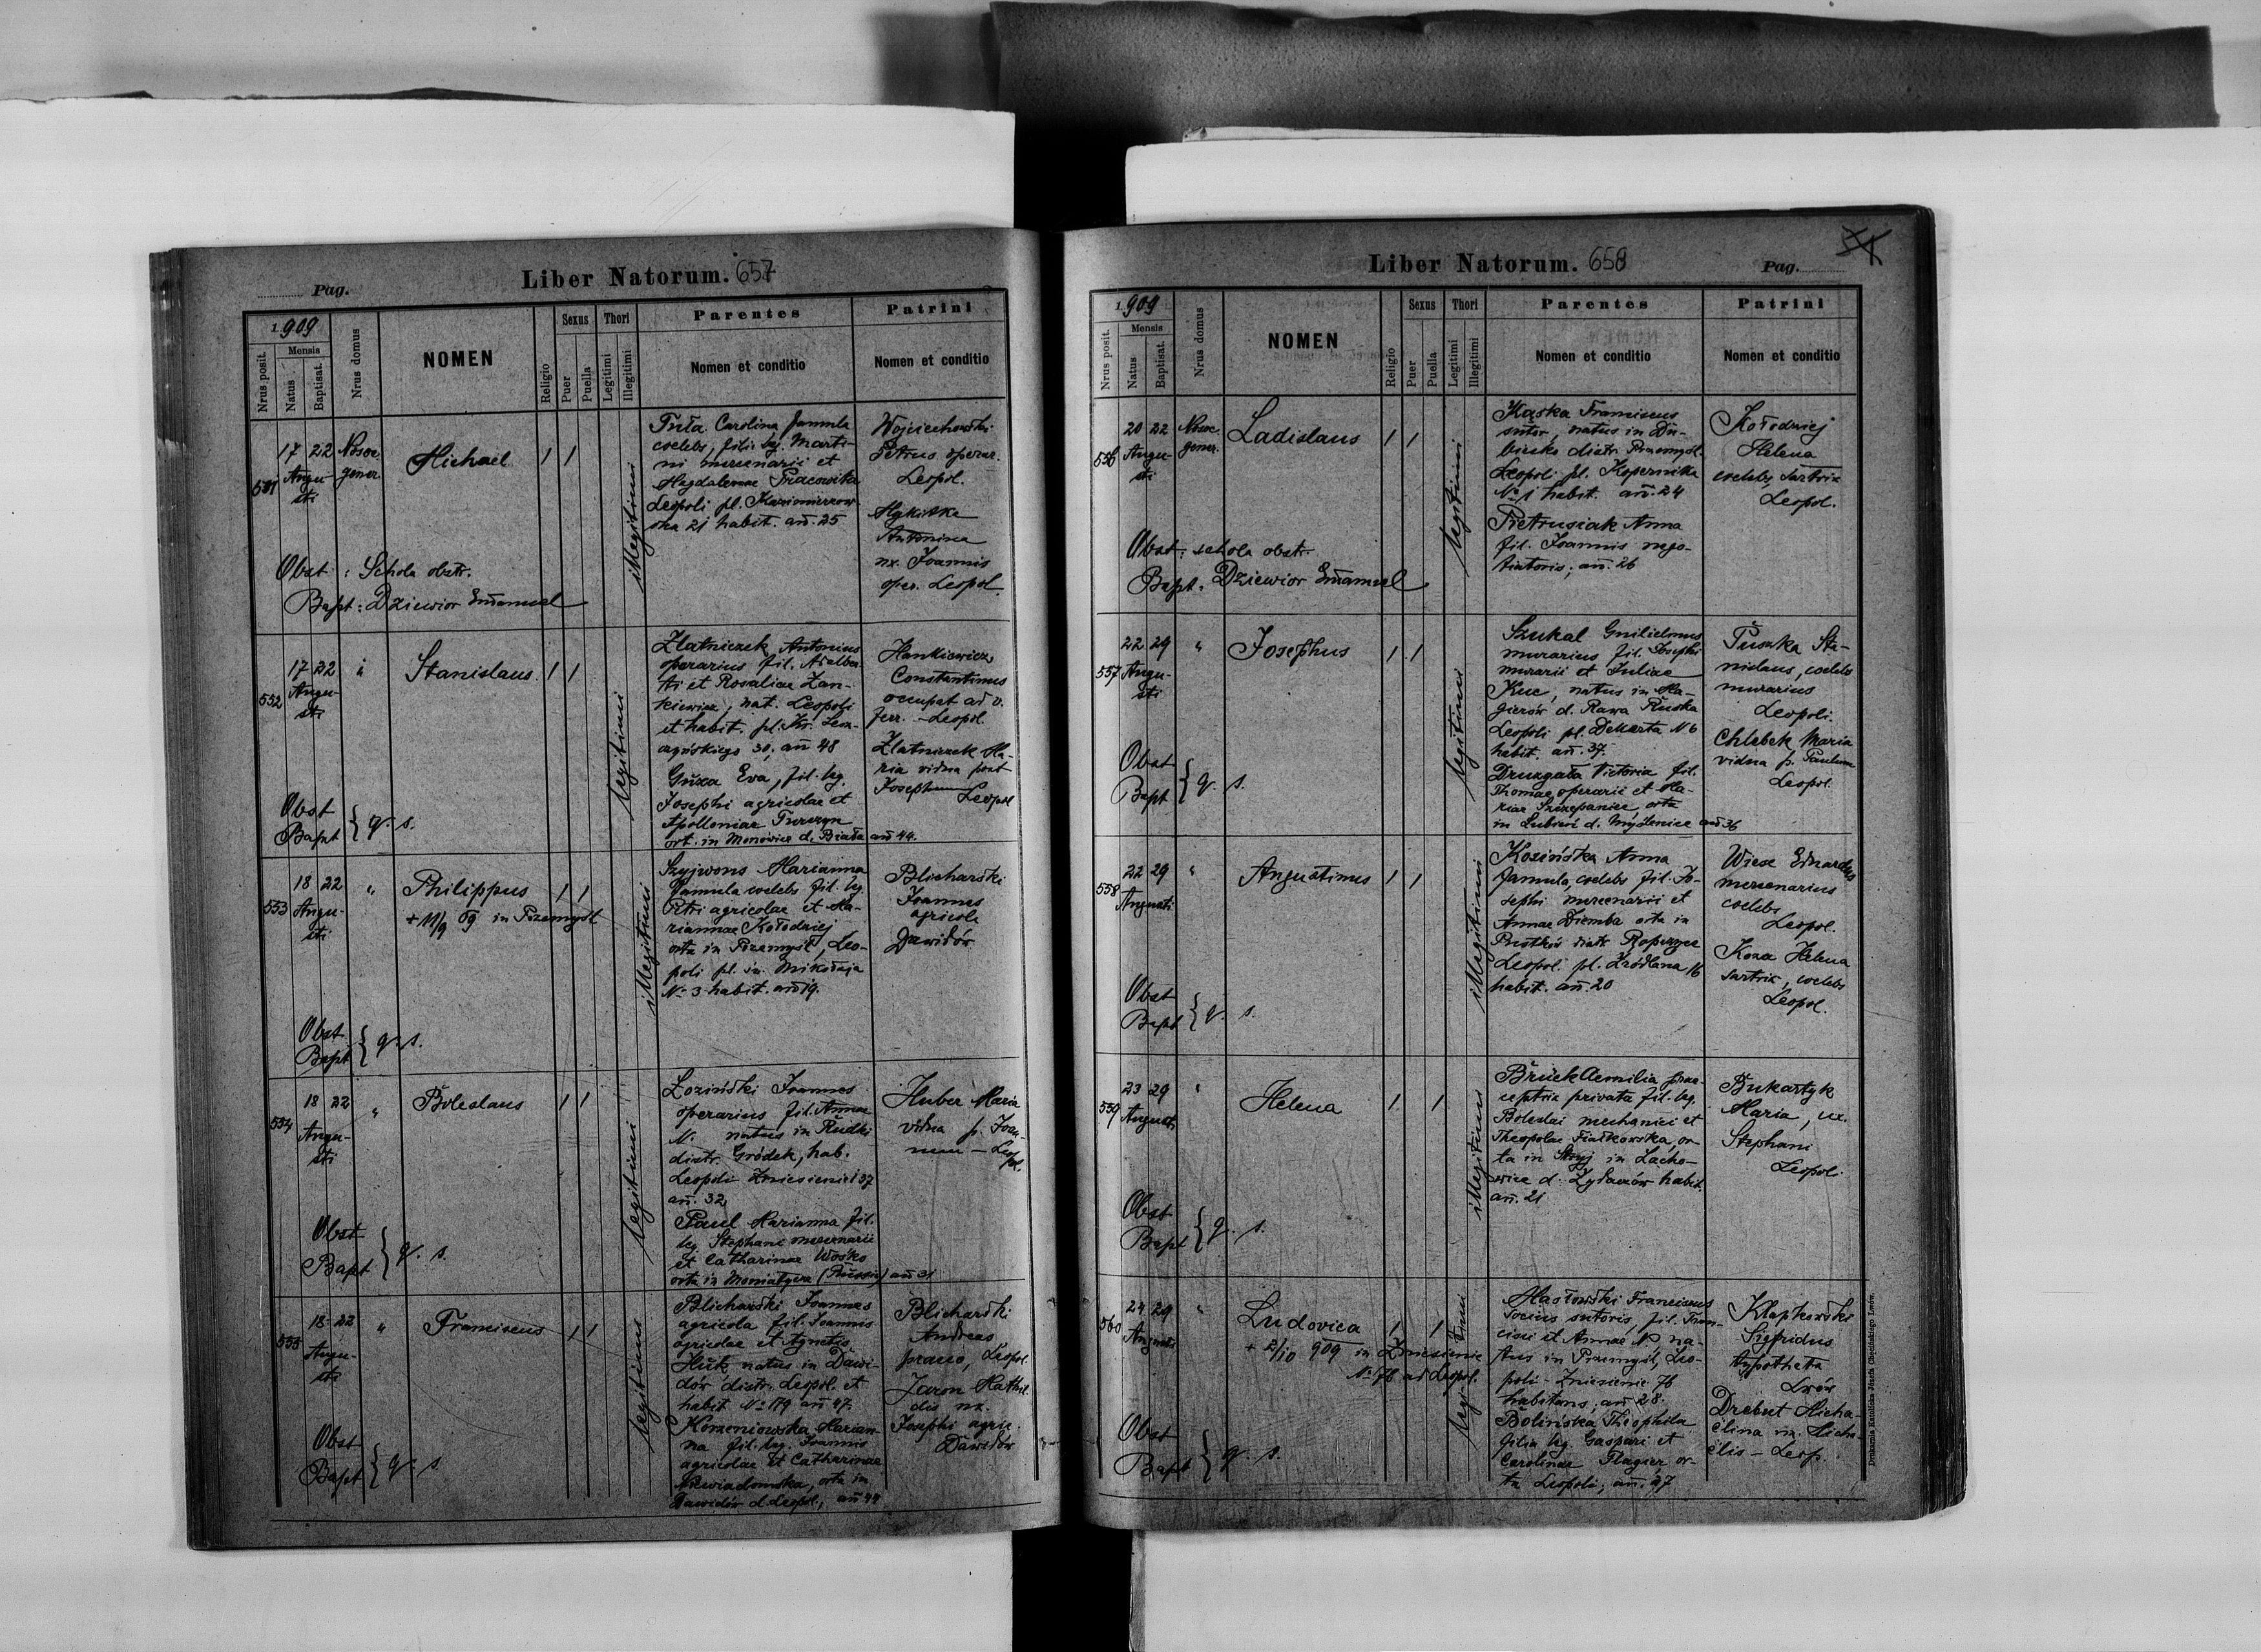 Liber Natorum. 657
Pag.
1.909
Nrus posit.
Mensis
Natus
Baptisat.
Nrus domus
NOMEN
Religio
Sexus
Puer
Puella
Thori
Legitimi
Illegitimi
Parentes
Nomen et conditio
Patrini
Nomen et conditio
17 22 Nosoc.
Augu- gener.
sti
Michael
1 1
illegitimi
Carolina famula
coelebs, filia leg. Marti-
ni mercenarii et
Magdalenae
Leopoli pl. Kazimierzow-
ska 21 habit. añ. 25
Wojciechowski
Petrus operar.
Leopol.
Antonina
ux. Joannis
oper. Leopol.
Obst : Schola obstr.
Bapt : Dziewior Emanuel
552
17 22 "
Augu-
sti
Stanislaus
1 1
legitimi
Zlatniczek Antonius
operarius fil. Adalber-
ti et Rosaliae Zan-
kiewicz, nat. Leopoli
et habit. pl. Kr. Lesz-
czyńskiego 30, añ 48
Guzia Eva, fil. leg.
Josephi agricolae et
Apolloniae
ort. in Monowice d. Biała añ 44.
Hankiewicz
Constantinus
occupat ad v.
ferr. - Leopol.
Zlatniczek Ma-
ria vidua post
Josephum
Leopol
Obst
Bapt } q. s.
553
18 22 "
Augu-
sti
Philippus
+ 11/9 09 in Przemyśl
1 1
illegitimi
Szyjwons Marianna
famula coelebs fil. leg.
Petri agricolae et Ma-
riannae Kołodziej
orta in Przemyśl, Leo-
poli pl. św. Mikołaja
No 3 habit. añ 19.
Blicharski
Joannes
agricola
Dawidów
Obst
Bapt } q. s.
554
18 22 "
Augu-
sti
Boleslaus
1 1
legitimi
Łoziński Joannes
operarius fil. Annae
N. natus in Rudki
distr. Gródek, hab.
Leopoli Zniesienie 137
añ. 32
Paul Marianna fil.
leg. Stephani mercenarii
et Catharinae Wośko
orta in Moniatycze (Russia) añ 31
Huber Maria
vidua p. Joan-
nem - Leopol.
Obst
Bapt } q. s.
555
18 22 "
Augu-
sti
Franciscus
1 1
legitimi
Blicharski Joannes
agricola fil. Joannis
agricolae et Agnetis
Huk natus in Dawi-
dów distr. Leopol. et
habit. No 179 añ 47.
Komoniowska Marian-
na fil. leg. Joannis
agricolae et Catharinae
Niewiadomska, orta in
Dawidów d. Leopol., añ 44
Blicharski
Andreas
Leopol.
Jaron Mathil-
dis ux.
Josephi agric.
Dawidów
Obst
Bapt } q. s.
Liber Natorum. 658
Pag.
1.909
Nrus posit.
Mensis
Natus
Baptisat.
Nrus domus
NOMEN
Religio
Sexus
Puer
Puella
Thori
Legitimi
Illegitimi
Parentes
Nomen et conditio
Patrini
Nomen et conditio
556
20 22 Nosoc.
Augu- gener.
sti
Ladislaus
1 1
legitimi
Kaska Franciscus
sutor, natus in Du-
biecko distr. Przemyśl.
Leopoli pl. Kopernika
No 1 habit. añ. 24
Pietrusiak Anna
fil. Joannis nego-
tiatoris; añ. 26
Kołodziej
Helena
coelebs, sartrix
Leopol.
Obst : schola obstr.
Bapt : Dziewior Emanuel
557
22 29 "
Augu-
sti
Josephus
1 1
legitimi
Szukal Guilielmus
murarius fil. Josephi
murarii et Juliae
Kuc, natus in Ma-
gierów d. Rawa Ruska
Leopoli pl. Dekerta No 6
habit. añ. 37.
Druzgała Victoria fil.
Thomae operarii et Ma-
riae Szczepaniec, orta
in Lubień d. Myślenice añ 36
Puszka Sta-
nislaus, coelebs
murarius
Leopoli.
Chlebek Maria
vidua p. Paulum
Leopol.
Obst
Bapt } q. s.
558
22 29 "
Augusti
Augustinus
1 1
illegitimi
Kozińska Anna
famula, coelebs fil. Jo-
sephi mercenarii et
Annae Ziemba orta in
Pustków distr. Ropczyce
Leopoli pl. Źródlana 16
habit. añ. 20
Wiese Eduardus
mercenarius
coelebs
Leopol.
Koza Helena
sartrix, coelebs
Leopol.
Obst
Bapt } q. s.
559
23 29 "
Augusti
Helena
1 1
illegitimi
Brück Aemilia prae-
ceptrix privata fil. leg.
Boleslai mechanici et
Theopolae Fiałkowska, or-
ta in Stryj in Lacho-
wice d. Żydaczów habit.
añ. 21
Bukartyk
Maria, ux.
Stephani
Leopol.
Obst
Bapt } q. s.
560
24 29 "
Augusti
Ludovica
+ 2/10 909 in Zniesienie
No 76 ad Leopol.
1 1
legitimi
Masłowski Franciscus
socius sutoris, fil. Fran-
cisci et Annae N. na-
tus in Przemyśl, Leo-
poli - Zniesienie 76
habitans; añ 28.
Bolińska Theophila
filia leg. Gaspari et
Carolinae Flagier or-
ta Leopoli; añ. 27
Kłapkowski
Sigfridus
Lwów
Drebut Micha-
elina ux. Micha-
elis - Leop.
Obst
Bapt } q. s.
Drukarnia Katolicka Józefa Chęcińskiego Lwów.